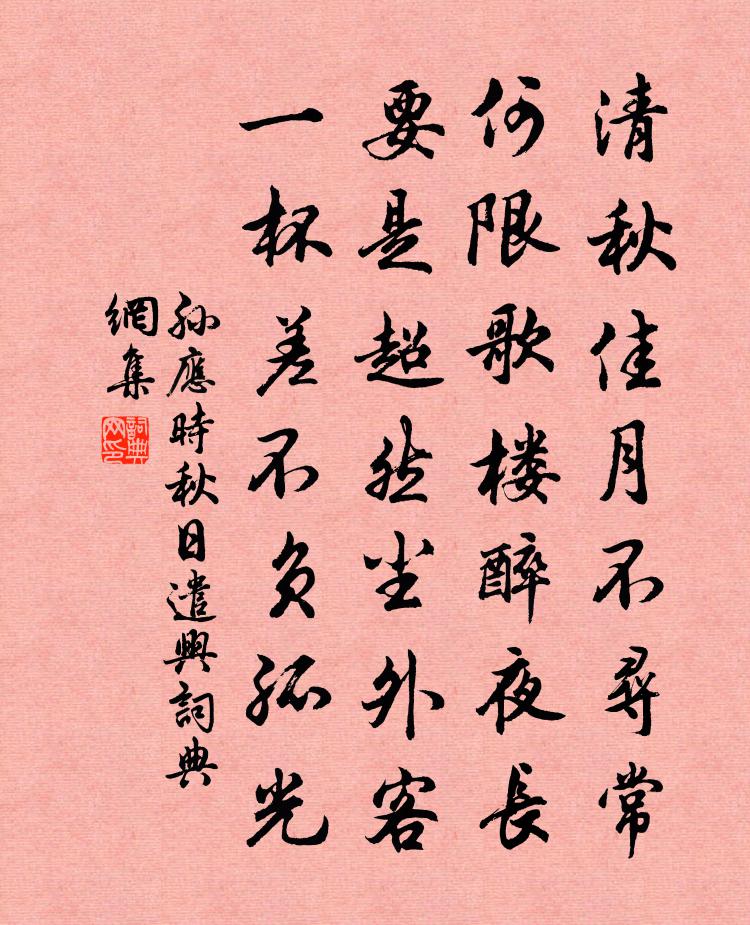 清秋佳月不尋常
何限歌楼醉夜長
要是超然尘外客
一杯差不负孤光
孫應時秋日遣興詞典
網集
詞典
网印